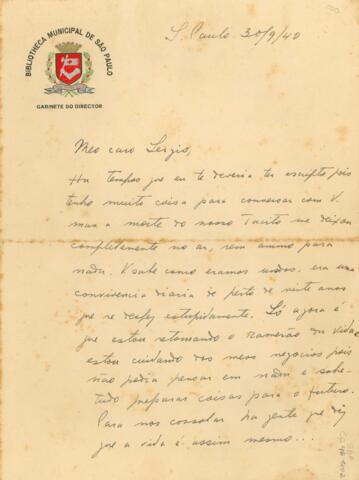 BIBLIOTHECA MUNICIPAL DE SÃO PAULO
GABINETE DO DIRECTOR
S. Paulo 30/9/40
Meo caro Sergio,
Ha tempos que eu te deveria ter escripto pois
tenho muita coisa para conversar com V.
mas a morte do nosso Tacito me deixou
completamente no ar, sem animo para
nada. V sabe como eramos unidos. era uma
convivencia diaria de perto de vinte anos
que se desfez estupidamente. Só agora é
que estou retomando o ramerão da vida e
estou cuidando dos meos negocios pois
não podia pensar em nada e sobre-
tudo preparar coisas para o futuro.
Para nos consolar ha gente que diz
que a vida é assim mesmo...